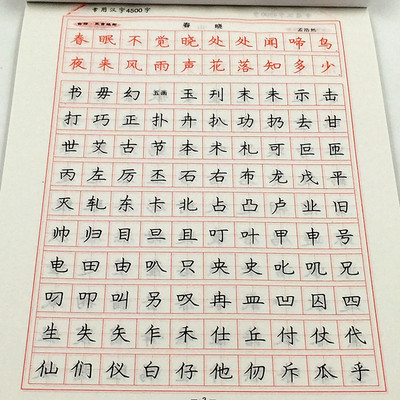 常用汉字4500字
春晓
孟浩然
春眠不觉晓处处闻啼鸟
夜来风雨声花落知多少
书毋幻五画玉刊末未示击
打巧正扑卉扒功扔去甘
世艾古节本术札可叵匝
丙左厉丕石右布龙戊平
灭轧东卡北占凸卢业旧
帅归目旦且叮叶甲申号
电田由叭只央史叱叽兄
叼叩叫另叹冉皿凹囚四
生失矢乍禾仕丘付仗代
仙们仪白仔他仞斥瓜乎